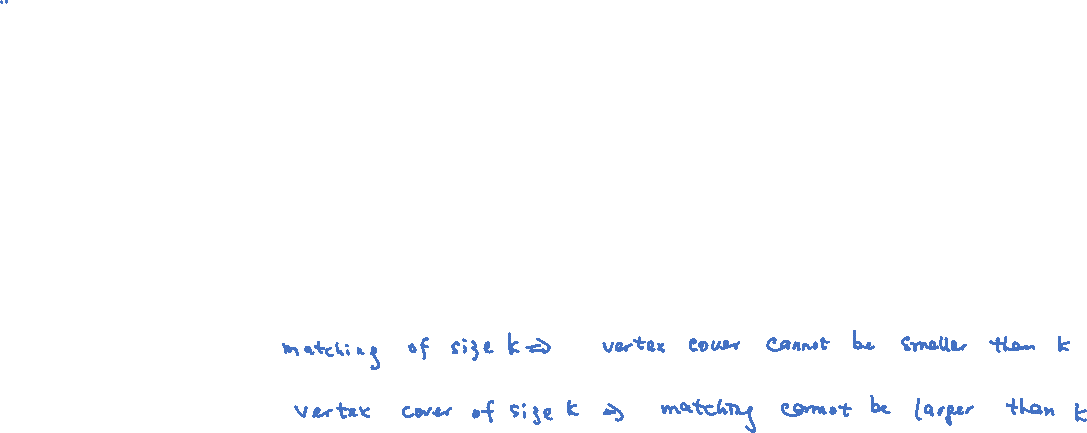 matching of size k ⇒ vertex cover cannot be smaller than k
vertex cover of size k ⇒ matching cannot be larger than k